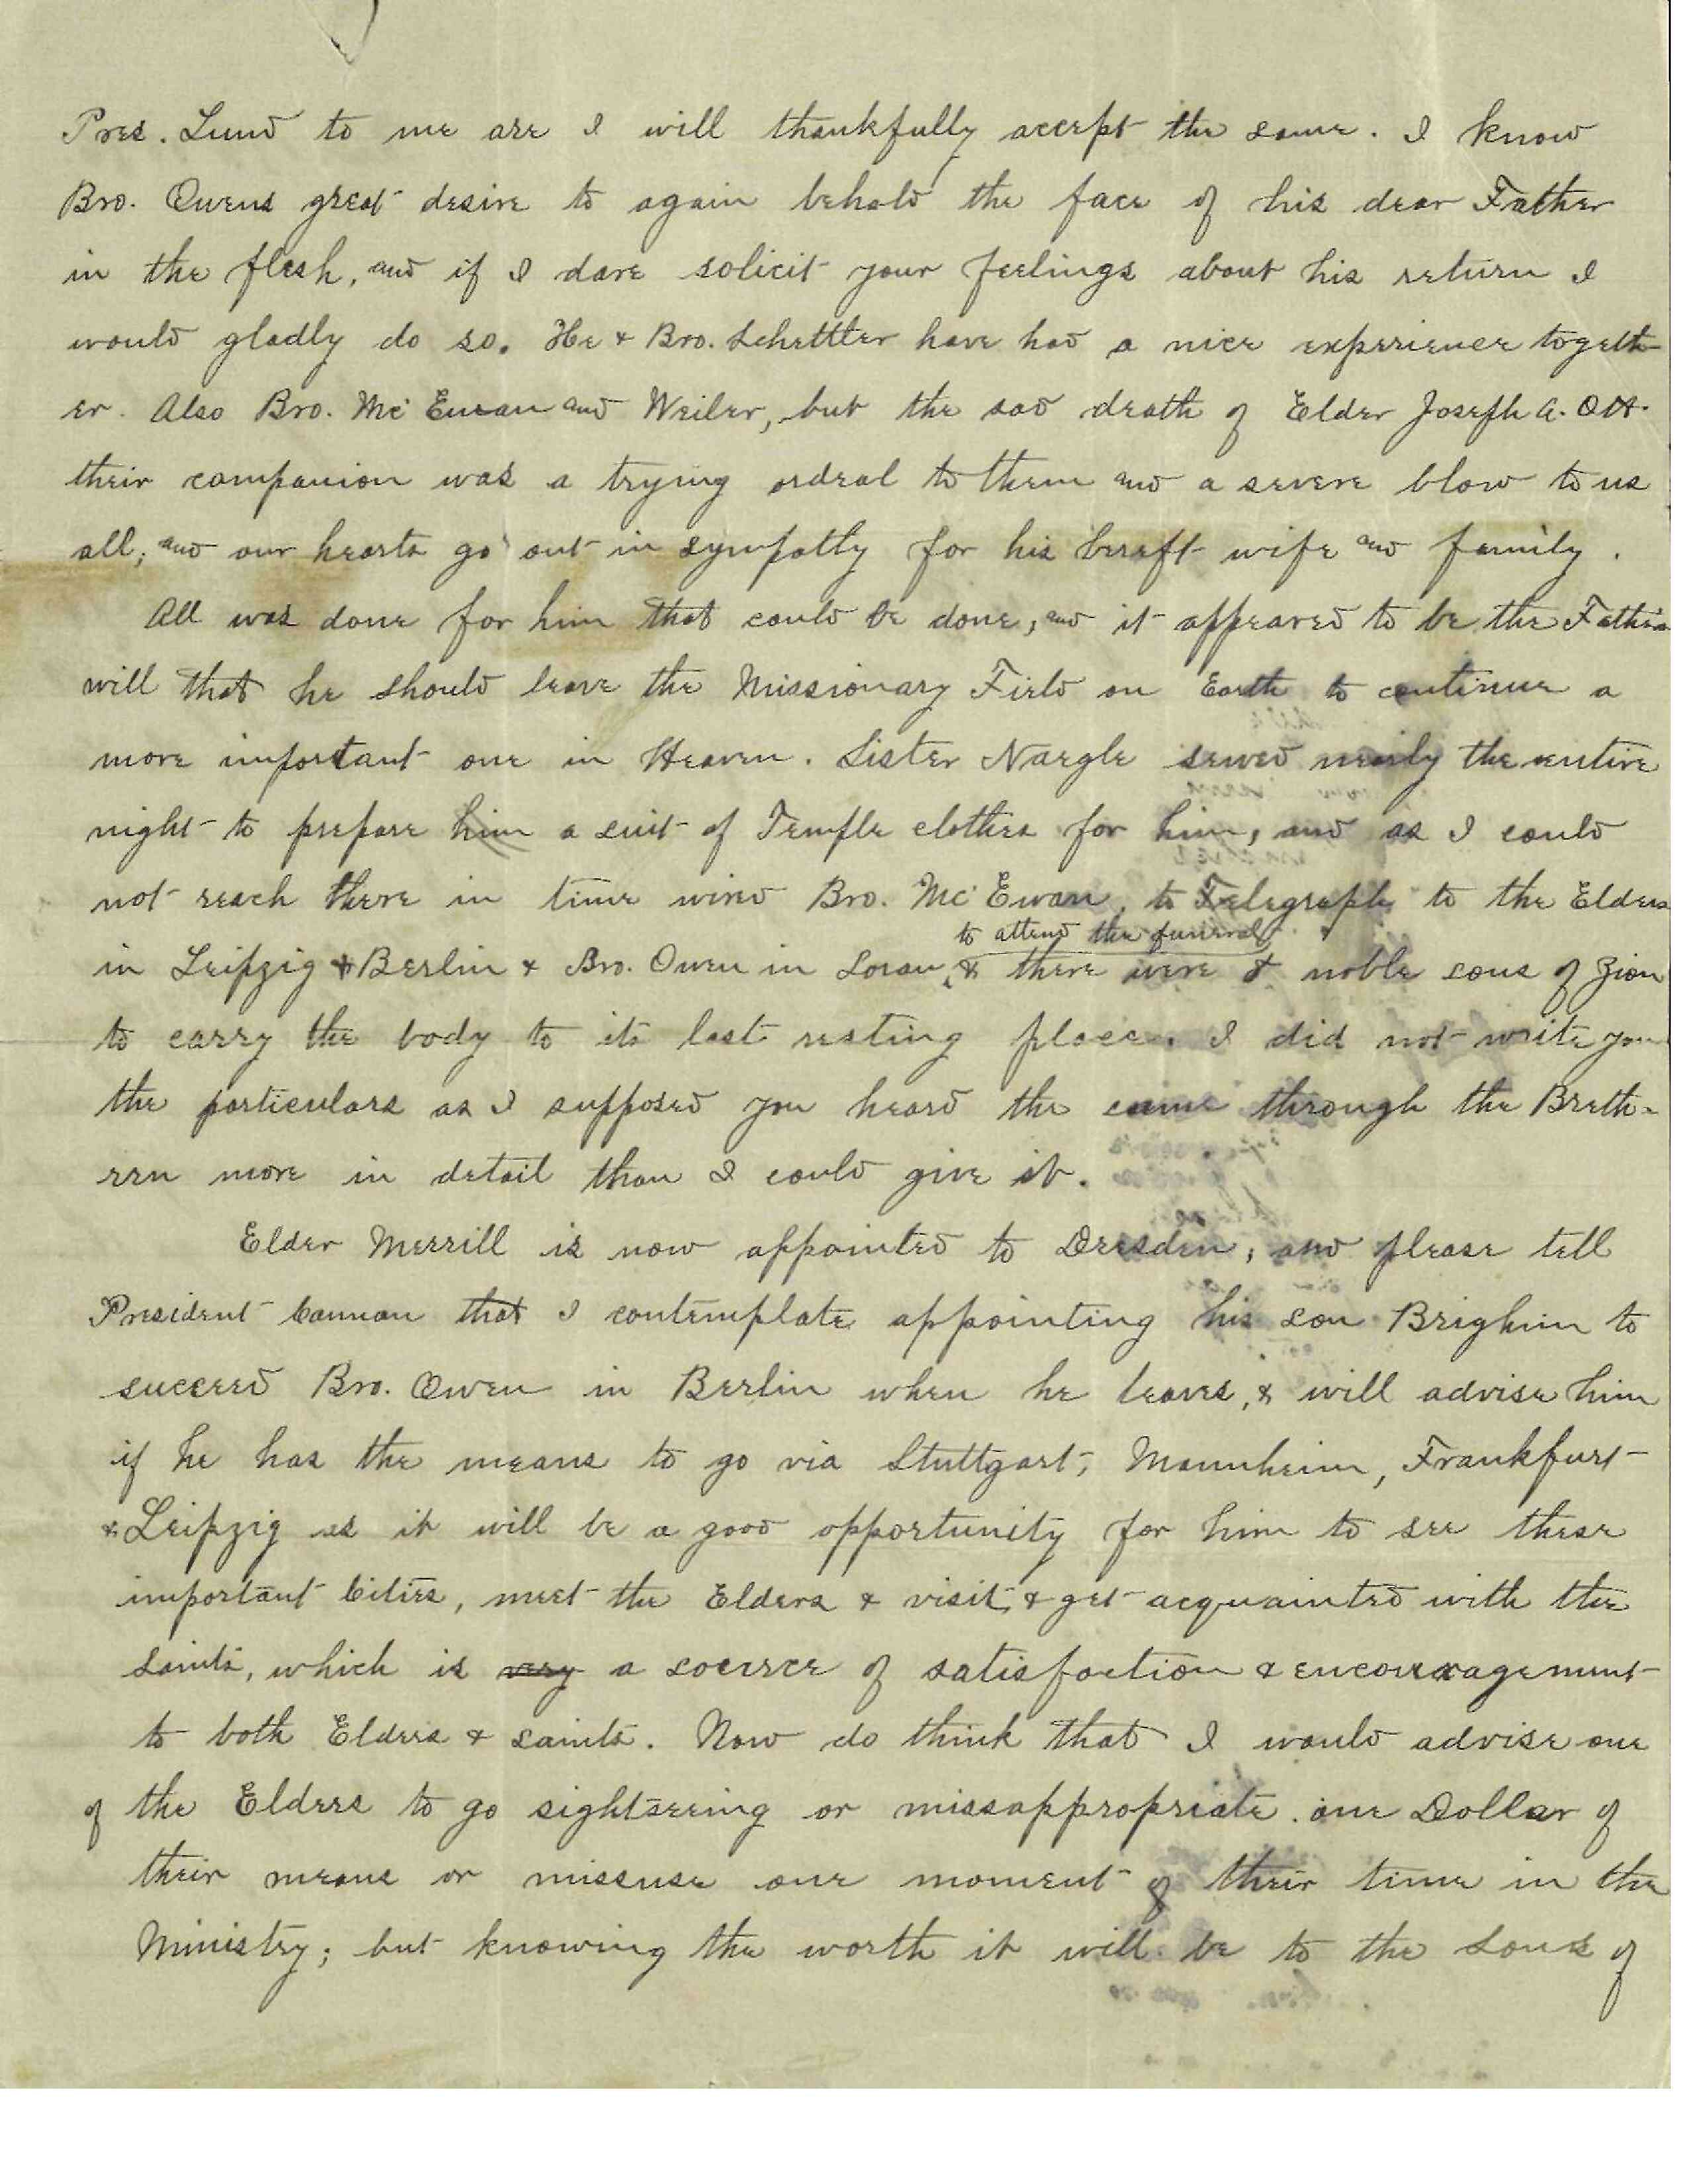 Pres. Lund to me are I will thankfully accept the same. I know
Bro. Owens great desire to again behold the face of his dear Father
in the flesh, and if I dare solicit your feelings about his return I
would gladly do so. He & Bro. Schettler have had a nice experience togeth-
er. Also Bro. Mc Ewan and Weiler, but the sad death of Elder Joseph A. Ott
their companion was a trying ordeal to them and a severe blow to us
all; and our hearts go out in sympathy for his bereft wife and family.
All was done for him that could be done, and it appeared to be the Fathers
will that he should leave the Missionary Field on Earth to continue a
more important one in Heaven. Sister Naegle sewed nearly the entire
night to prepare him a suit of Temple clothes for him, and as I could
not reach there in time wired Bro. Mc Ewan, to Telegraph to the Elders
to attend the funeral
in Leipzig & Berlin & Bro. Owen in Sorau, & there were 8 noble sons of Zion
to carry the body to its last resting place. I did not write you
the particulars as I supposed you heard the same through the Breth-
ren more in detail than I could give it.
Elder Merrill is now appointed to Dresden, and please tell
President Cannon that I contemplate appointing his son Brighim to
succeed Bro. Owen in Berlin when he leaves, & will advise him
if he has the means to go via Stuttgart, Mannheim, Frankfurt
& Leipzig as it will be a good opportunity for him to see these
important Cities, meet the Elders & visit, & get acquainted with the
saints, which is very a source of satisfaction & encouragement
to both Elders & saints. Now do think that I would advise one
of the Elders to go sightseeing or missappropriate one Dollar of
their means or missuse one moment of their time in the
Ministry; but knowing the worth it will be to the sons of